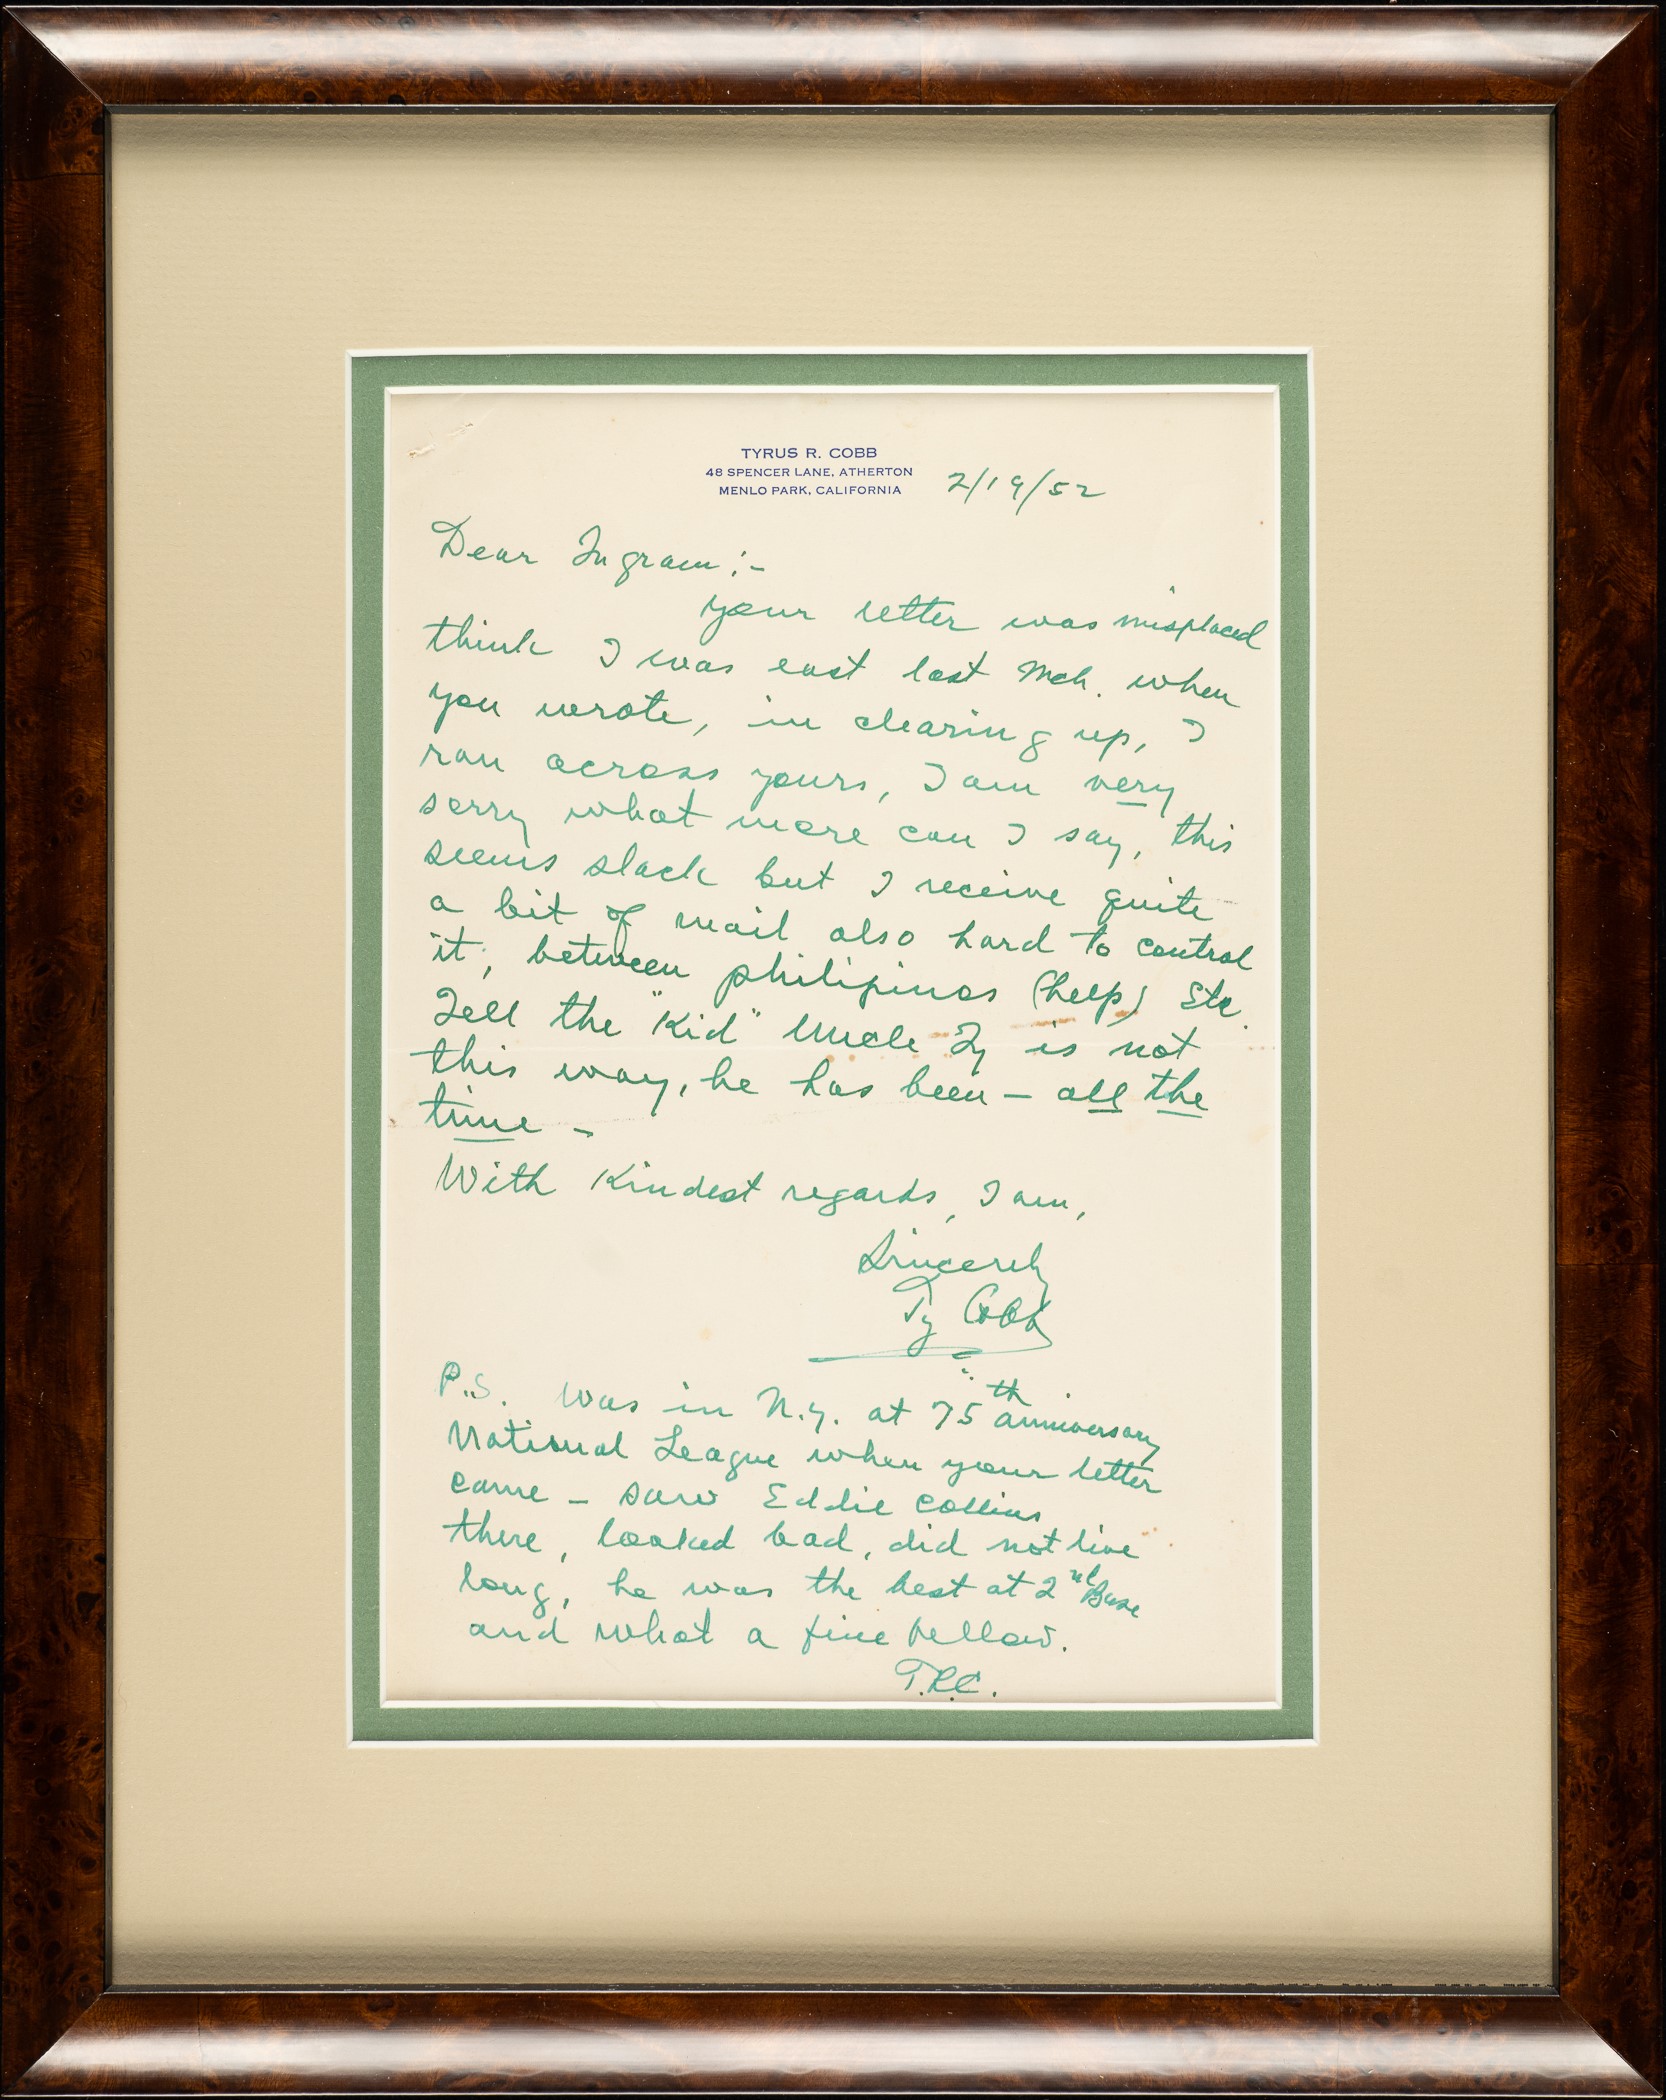 TYRUS R. COBB
48 SPENCER LANE, ATHERTON
MENLO PARK, CALIFORNIA
2/19/52
Dear Ingram:-
your letter was misplaced
think I was east last Mch. when
you wrote, in clearing up, I
ran across yours, I am very
sorry what more can I say, this
seems slack but I receive quite
a bit of mail also hard to control
it, between philipinos (help) Etc.
Tell the "Kid" Uncle Ty is not
this way, he has been - all the
time -
With Kindest regards, I am,
Sincerely
Ty Cobb
P.S. Was in N.Y. at 75th anniversary
National League when your letter
came - saw Eddie Collins
there, looked bad, did not live
long, he was the best at 2nd Base
and what a fine fellow.
T.R.C.